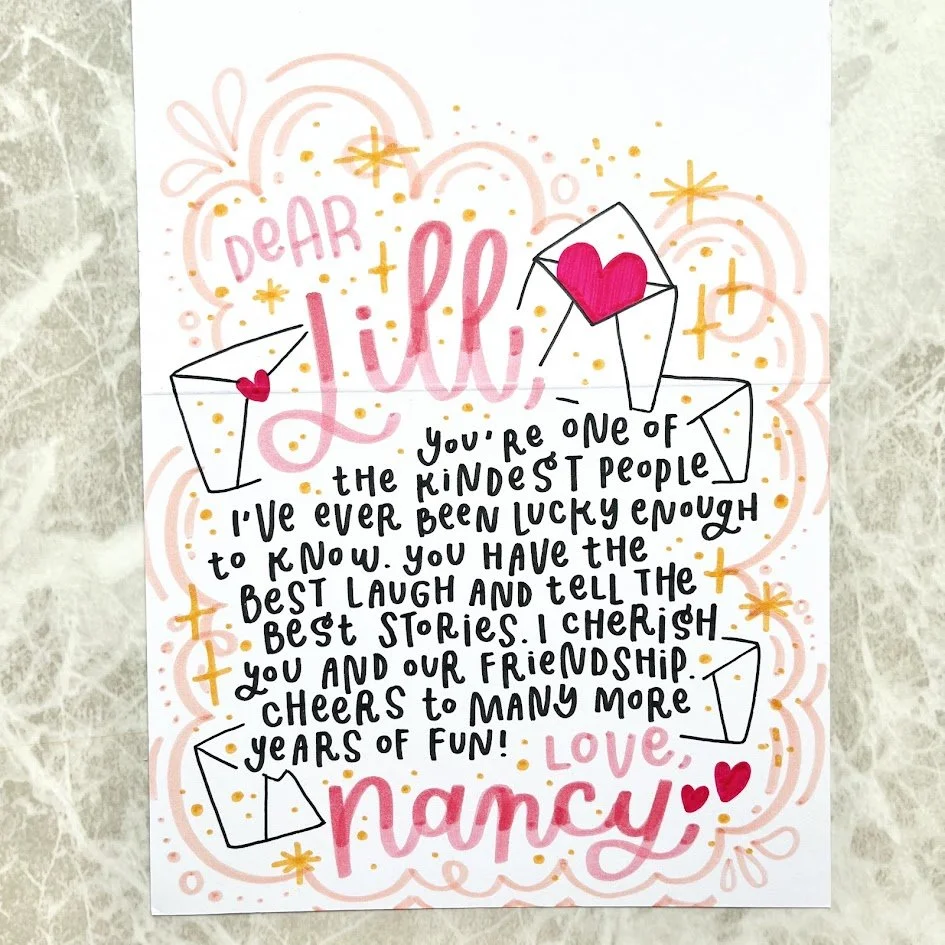 DEAR
Lill,
you're ONE OF
tHE KINDEST PEOPLE
I'VE EVER BEEN LUCKY ENOUGH
to KNOW. YOU HAVE tHE
BEST LAUGH AND tELL THE
BEST STORIES. I CHERISH
you AND OUR FRIENDSHIP.
CHEERS to MANY MORE
YEARS OF FUN! LOVE,
nancy